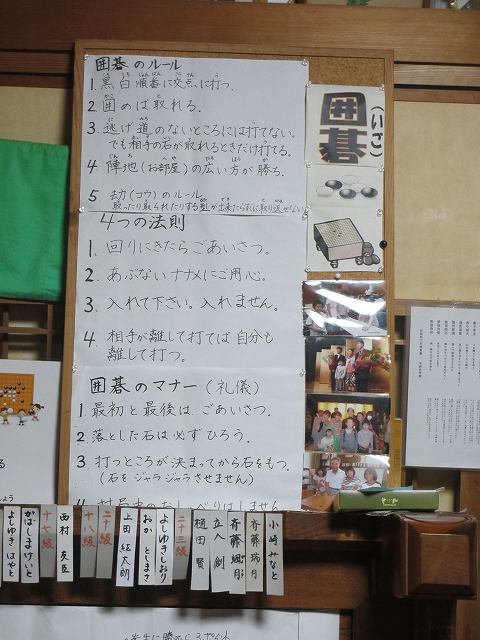 囲碁のルール
1. 黒白順番に交点に打つ。
2 囲めば取れる。
3 逃げ道のないところには打てない。
でも相手の石が取れるときだけ打てる。
4 陣地(お部屋)の広い方が勝ち。
5 劫(コウ)のルール
4つの法則
1、回りにきたらごあいさつ。
2、あぶないナナメにご用心。
3、入れて下さい。入れません。
4 相手が離して打てば自分も
離して打つ。
囲碁のマナー(礼儀)
1 最初と最後は ごあいさつ。
2 落とした石は必ずひろう。
3 打つところが決まってから石をもつ。
(石をジャラジャラさせません)
囲碁
(いご)
小崎みなと
斉藤瑞月
斉藤颯月
立入創
樋田賢
二十三級
よしゆきしおり
おかとしまさ
上田紘太朗
二十級
十八級
西村矢臣
十七級
かばしまけいと
よしゆきはやと